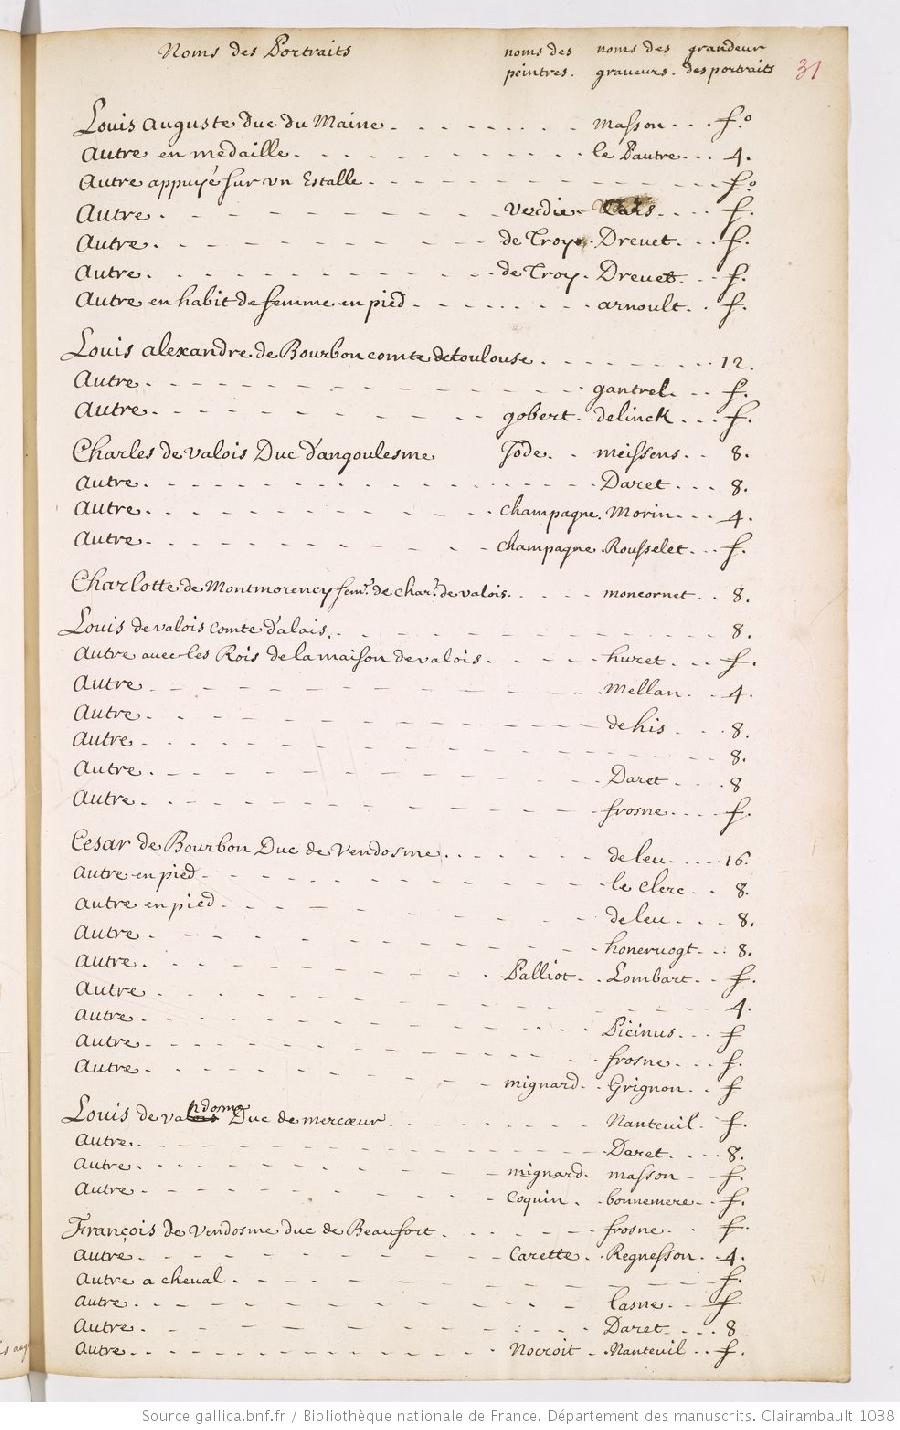 Noms des Portraits noms des peintres. noms des graveurs. grandeur des portraits 31
Louis Auguste Duc du Maine. Masson. f.º
Autre en medaille. le Pautre. 4.
Autre appuyé sur un Estalle. f.º
Autre. Verdier f.
Autre. de Troy. Drevet. f.
Autre. de Troy. Drevet. f.
Autre en habit de femme en pied. arnoult. f.
Louis alexandre de Bourbon comte de toulouse. 12.
Autre. gantrel. f.
Autre. gobert. delinck. f.
Charles de Valois Duc d'angoulesme Jode. meissens. 8.
Autre. Daret. 8.
Autre. champagne. Morin. 4.
Autre. champagne. Rousselet. f.
Charlotte de Montmorency fem.e de char.s de valois. moncornet. 8.
Louis de valois comte d'alais. 8.
Autre avec les Rois de la maison de valois. huret. f.
Autre Mellan. 4
Autre. de his. 8.
Autre. 8.
Autre. Daret. 8
Autre. frosne. f.
Cesar de Bourbon Duc de Vendosme. de leu. 16.
Autre en pied. le Clerc. 8.
Autre en pied. de leu. 8.
Autre. honervogt. 8.
Autre. Palliot. Lombart. f.
Autre. 4.
Autre. Picinus. f
Autre. frosne. f.
Autre. mignard. Grignon. f
Louis de vandome Duc de mercœur Nanteuil. f.
Autre. Daret. 8.
Autre. mignard. masson f.
Autre. Coquin. bonnemere. f.
François de Vendosme duc de Beaufort. frosne. f.
Autre. Carette. Regnesson. 4.
Autre a cheval. f.
Autre. lasne. f
Autre. Daret. 8
Autre. Nocroit. Nanteuil. f.
Source gallica.bnf.fr / Bibliothèque nationale de France. Département des manuscrits. Clairambault 1038